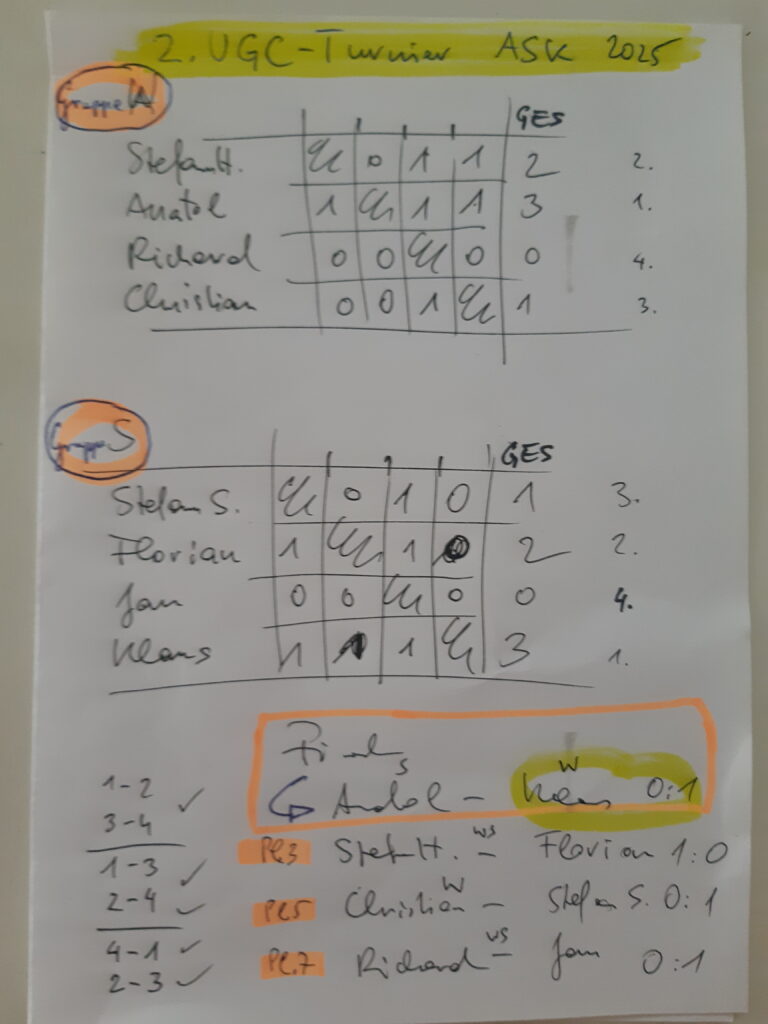 2. UGC-Turnier ASK 2025
Gruppe A
GES
Stefan H. 0 1 1 2 2.
Anatol 1 1 1 3 1.
Richard 0 0 0 0 4.
Christian 0 0 1 1 3.
Gruppe S
GES
Stefan S. 0 1 0 1 3.
Florian 1 1 0 2 2.
Jan 0 0 0 0 4.
Klaus 1 1 1 3 1.
Finale
S W
Anatol - Klaus 0:1
1-2
3-4
1-3
2-4
4-1
2-3
Pl.3 Stefan H. WS - Florian 1:0
Pl.5 Christian W - Stefan S. 0:1
Pl.7 Richard WS - Jan 0:1